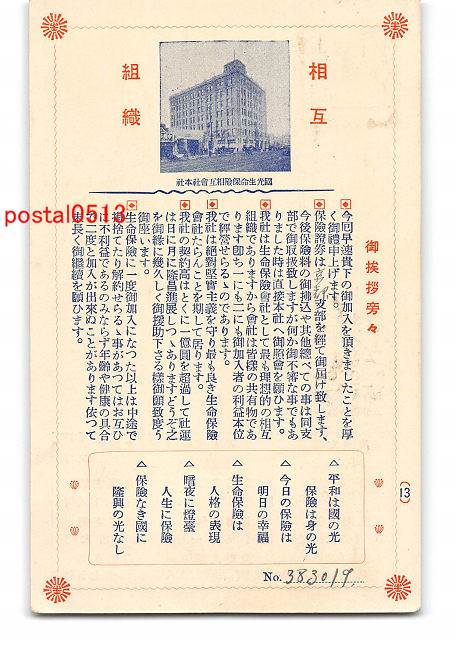 相互
組織
國光生命保險相互會社本社
御挨拶旁々
今回早速貴下の御加入を頂きましたことを厚
く御禮申上げます。
保險證券は 支部を經て御屆け致します、
今後保險料の御拂込や其他總べての事は同支
部で御取扱致しますが何か御不審な事でもあ
りました時は直接本社へ御照會を願ひます。
我社は生命保險會社として最も理想的の相互
組織でありますから會社は皆樣の共有物であ
ります卽ち一にも二にも御加入者の利益本位
で經營せらるゝのであります。
我社は絕對堅實主義を守り最も良き生命保險
會社たらんことを期して居ります。
我社の契約高はとくに一億圓を超過して社運
は日に月に隆昌進展しつゝありますどうぞ之
を御緣に幾久しく御援助下さる樣御願致度う
御座います。
生命保險に一度御加入になつた以上は中途で
捨てたり解約せらるゝ事があつてはお互ひ
に不利益であるのみならず年齡や健康の具合
で二度と加入が出來ぬことがあります依つて
末長く御繼續を願ひます。
△ 平和は國の光
保險は身の光
△ 今日の保險は
明日の幸福
△ 生命保險は
人格の表現
△ 暗夜に燈臺
人生に保險
△ 保險なき國に
隆興の光なし
(13)
No. 383019
postal0512